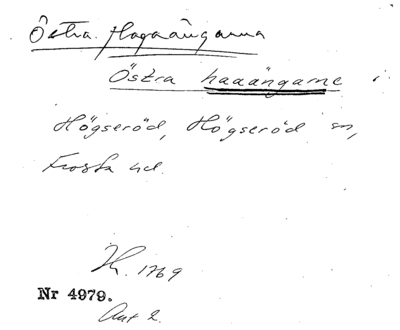 Östra Hagaängarna
Östra haaängarne i
Högseröd, Högseröd sn,
Frosta hd.
H. 1769
Nr 4979.
Akt 2.